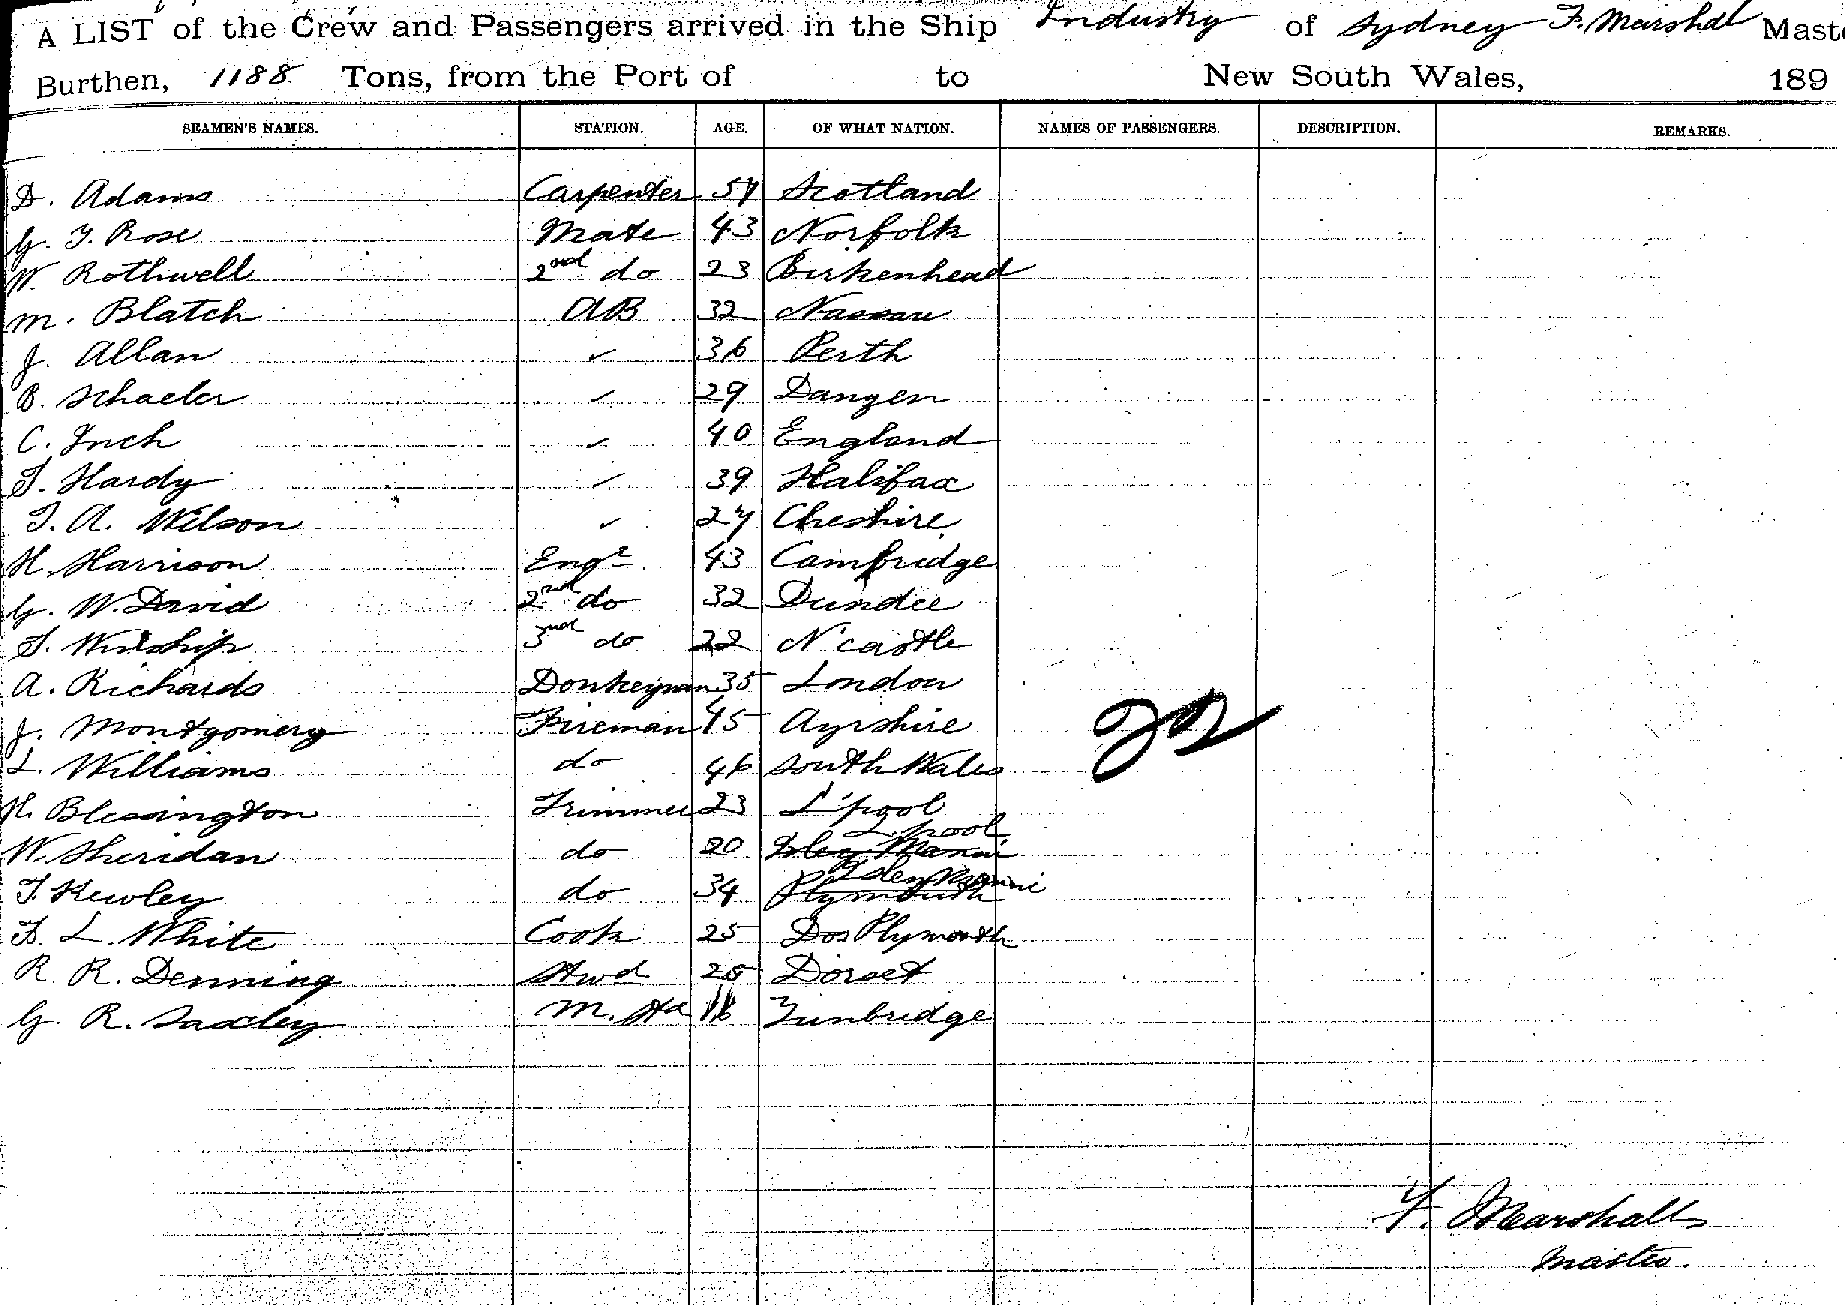 A LIST of the Crew and Passengers arrived in the Ship Industry of Sydney F. Marshall Maste
Burthen, 1188 Tons, from the Port of to New South Wales, 189
SEAMEN'S NAMES. STATION. AGE. OF WHAT NATION. NAMES OF PASSENGERS. DESCRIPTION. REMARKS.
D. Adams Carpenter 57 Scotland
G. J. Rose Mate 43 Norfolk
W. Rothwell 2nd do 23 Birkenhead
M. Blatch AB 32 Nassau
J. Allan ✓ 36 Perth
B. Schaeler ✓ 29 Dangen
C. Inch ✓ 40 England
T. Hardy ✓ 39 Halifax
T. A. Wilson ✓ 27 Cheshire
H. Harrison Engr 43 Cambridge
G. W. David 2nd do 32 Dundee
T. Winship 3rd do 22 N'castle
A. Richards Donkeyman 35 London
J. Montgomery Fireman 45 Ayrshire
L. Williams do 46 South Wales
H. Blessington Trimmer 23 L'pool
W. Sheridan do 20 Isley Manni L'pool
T. Kewley do 34 Plymouth Isley Manni
F. L. White Cook 25 Dos Plymouth
R. R. Denning Stwd 25 Dorset
G. R. Saxley M. Std 16 Tunbridge
22
F. Marshall
Master.